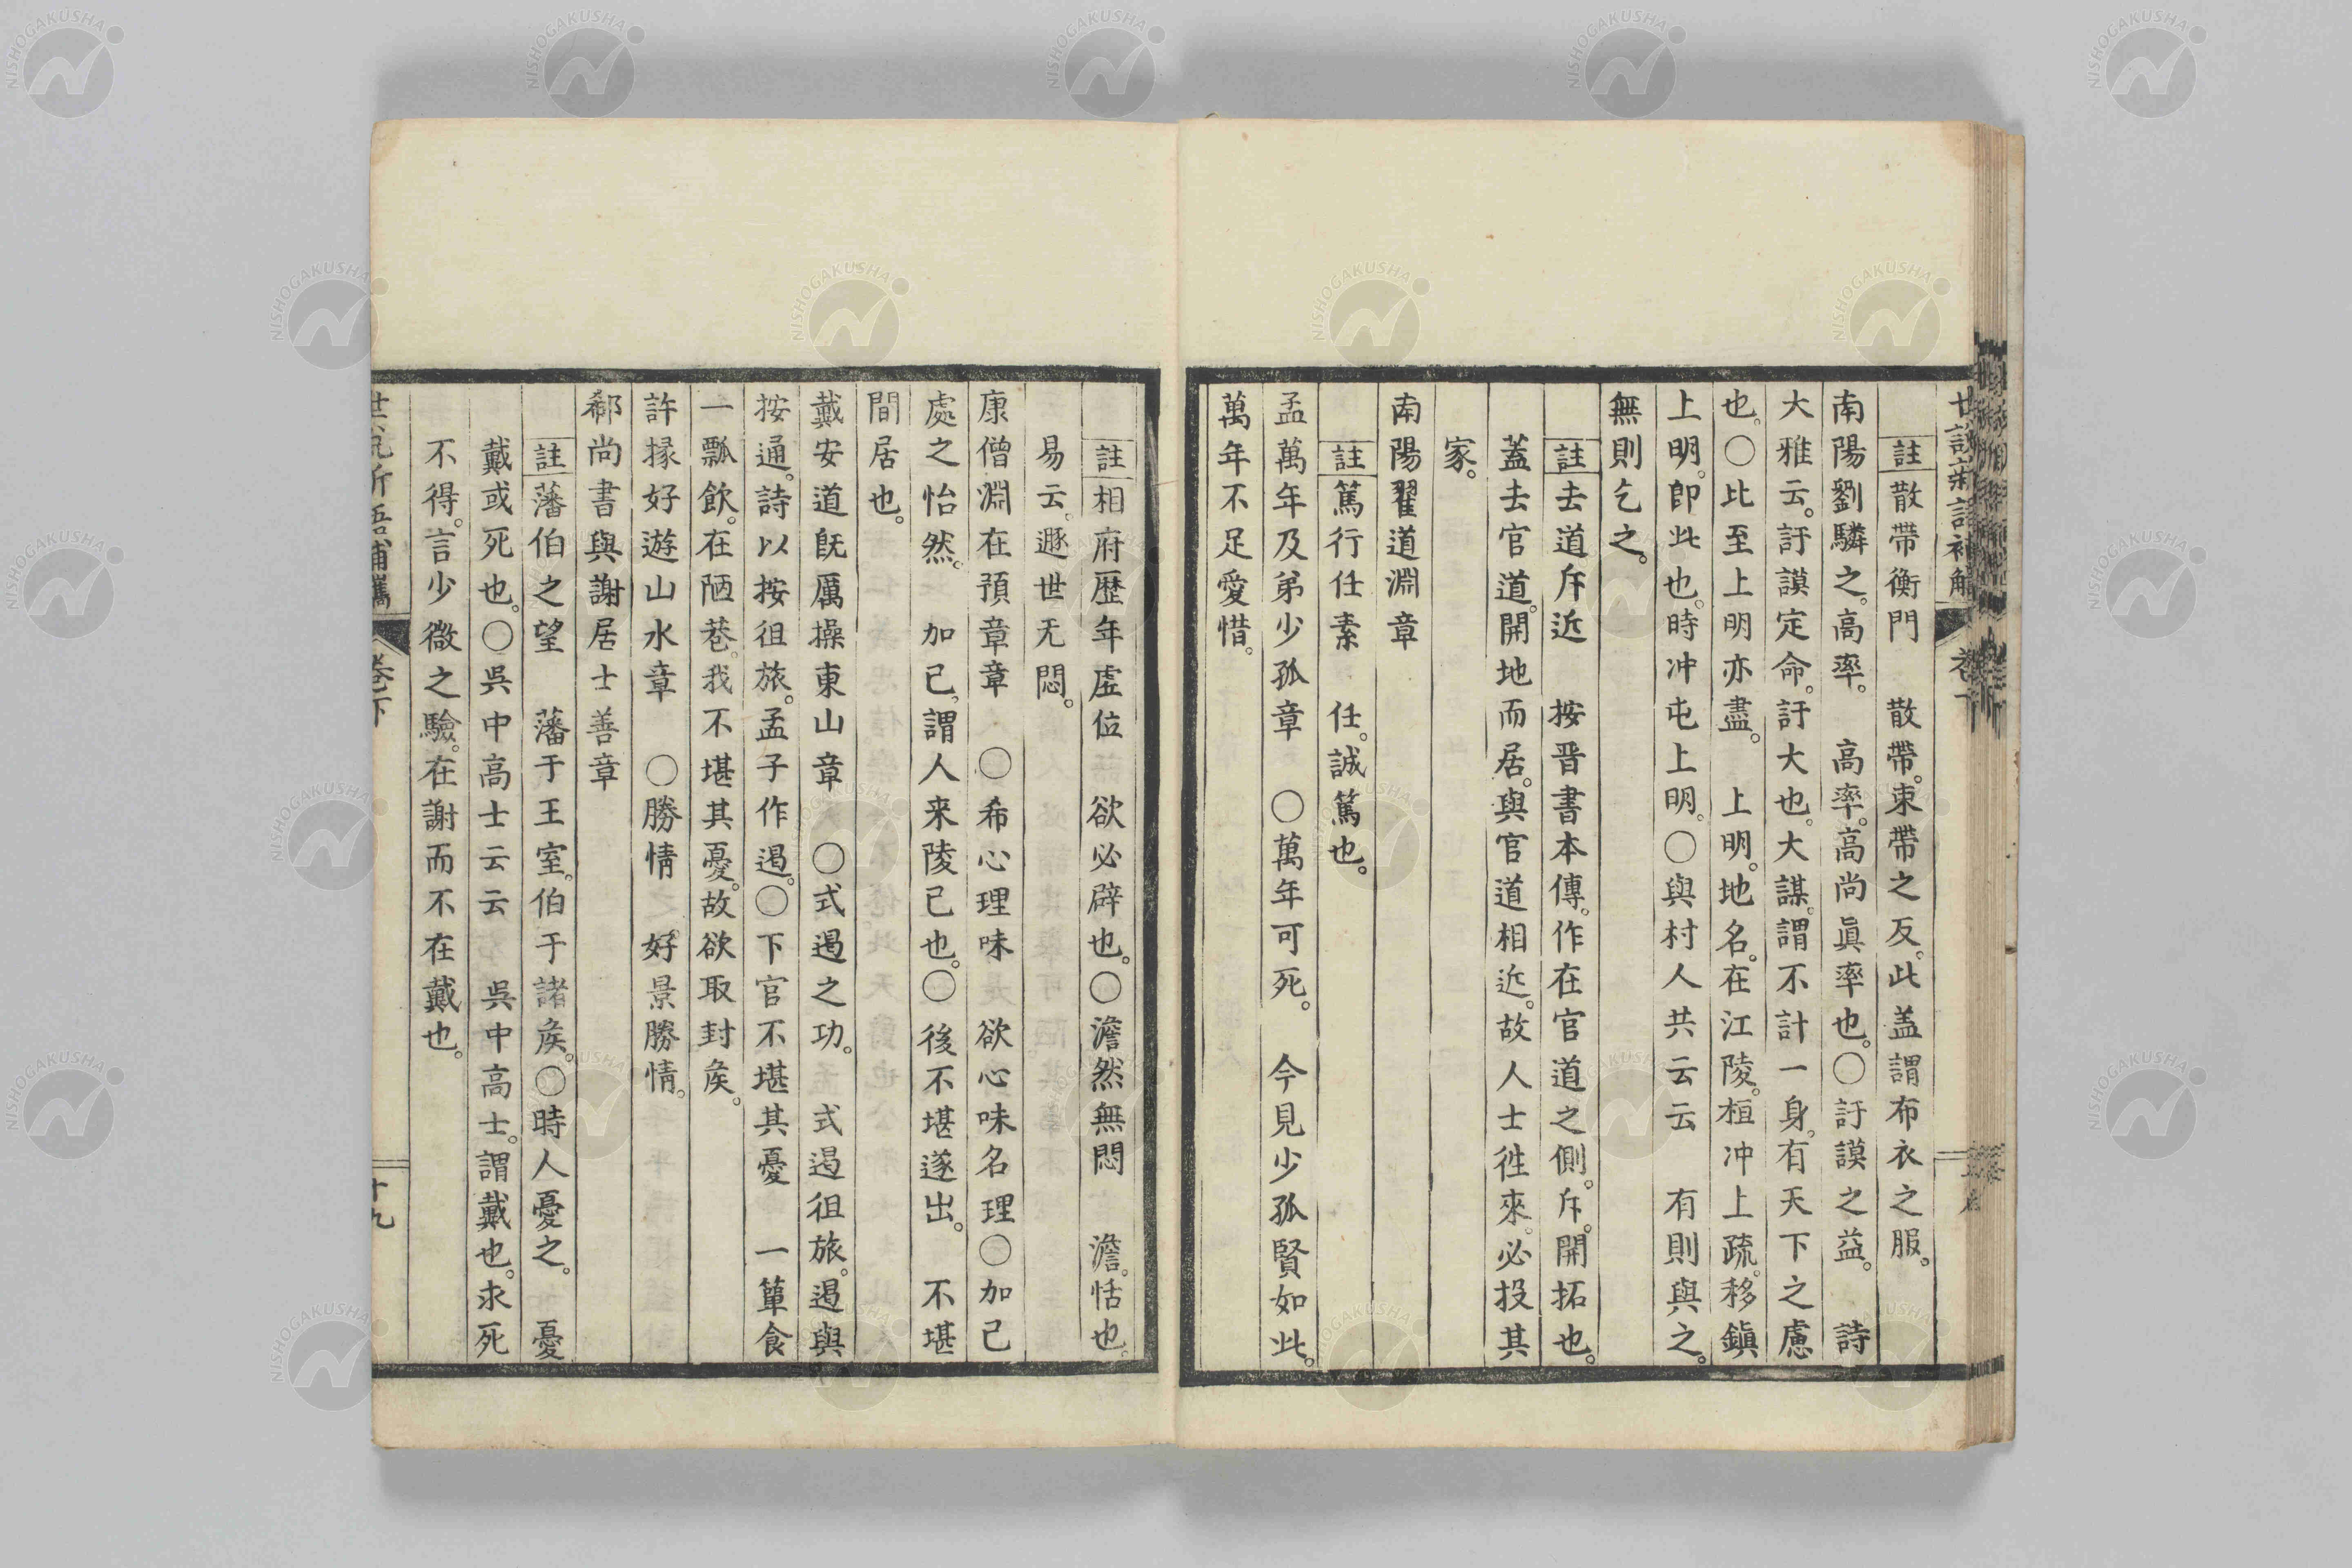 註散帶衡門　散帶。束帶之反。此盖謂布衣之服。
南陽劉驎之。高率。　高率。高尚眞率也。〇訏謨之益。　詩
大雅云。訏謨定命。訏大也。大謀。謂不計一身。有天下之慮
也。〇比至上明亦盡。　上明。地名。在江陵。桓冲上疏。移鎭
上明。卽此也。時冲屯上明。〇與村人共云云　有則與之。
無則乞之。
註去道斥近　按晋書本傳。作在官道之側。斥。開拓也。
蓋去官道。開地而居。與官道相近。故人士徃來。必投其
家。
南陽翟道淵章
註篤行任素　任。誠篤也。
孟萬年及弟少孤章　〇萬年可死。　今見少孤賢如此。
萬年不足愛惜。
註相府歴年虛位　欲必辟也。〇澹然無悶　澹。恬也。
易云。遯世无悶。
康僧淵在預章章　〇希心理味　欲心味名理〇加已
處之怡然。　加已。謂人来陵已也。〇後不堪遂出。　不堪
間居也。
戴安道旣厲操東山章　〇式遏之功。　式遏徂旅。遏與
按通。詩以按徂旅。孟子作遏。〇下官不堪其憂　一簞食
一瓢飲。在陋巷。我不堪其憂。故欲取封矦。
許掾好遊山水章　〇勝情　好景勝情。
郗尚書與謝居士善章
註藩伯之望　藩于王室。伯于諸矦。〇時人憂之。　憂
戴或死也。〇吳中高士云云　吳中高士。謂戴也。求死
不得。言少微之驗。在謝而不在戴也。
卷下
十九
NISHOGAKUSHA